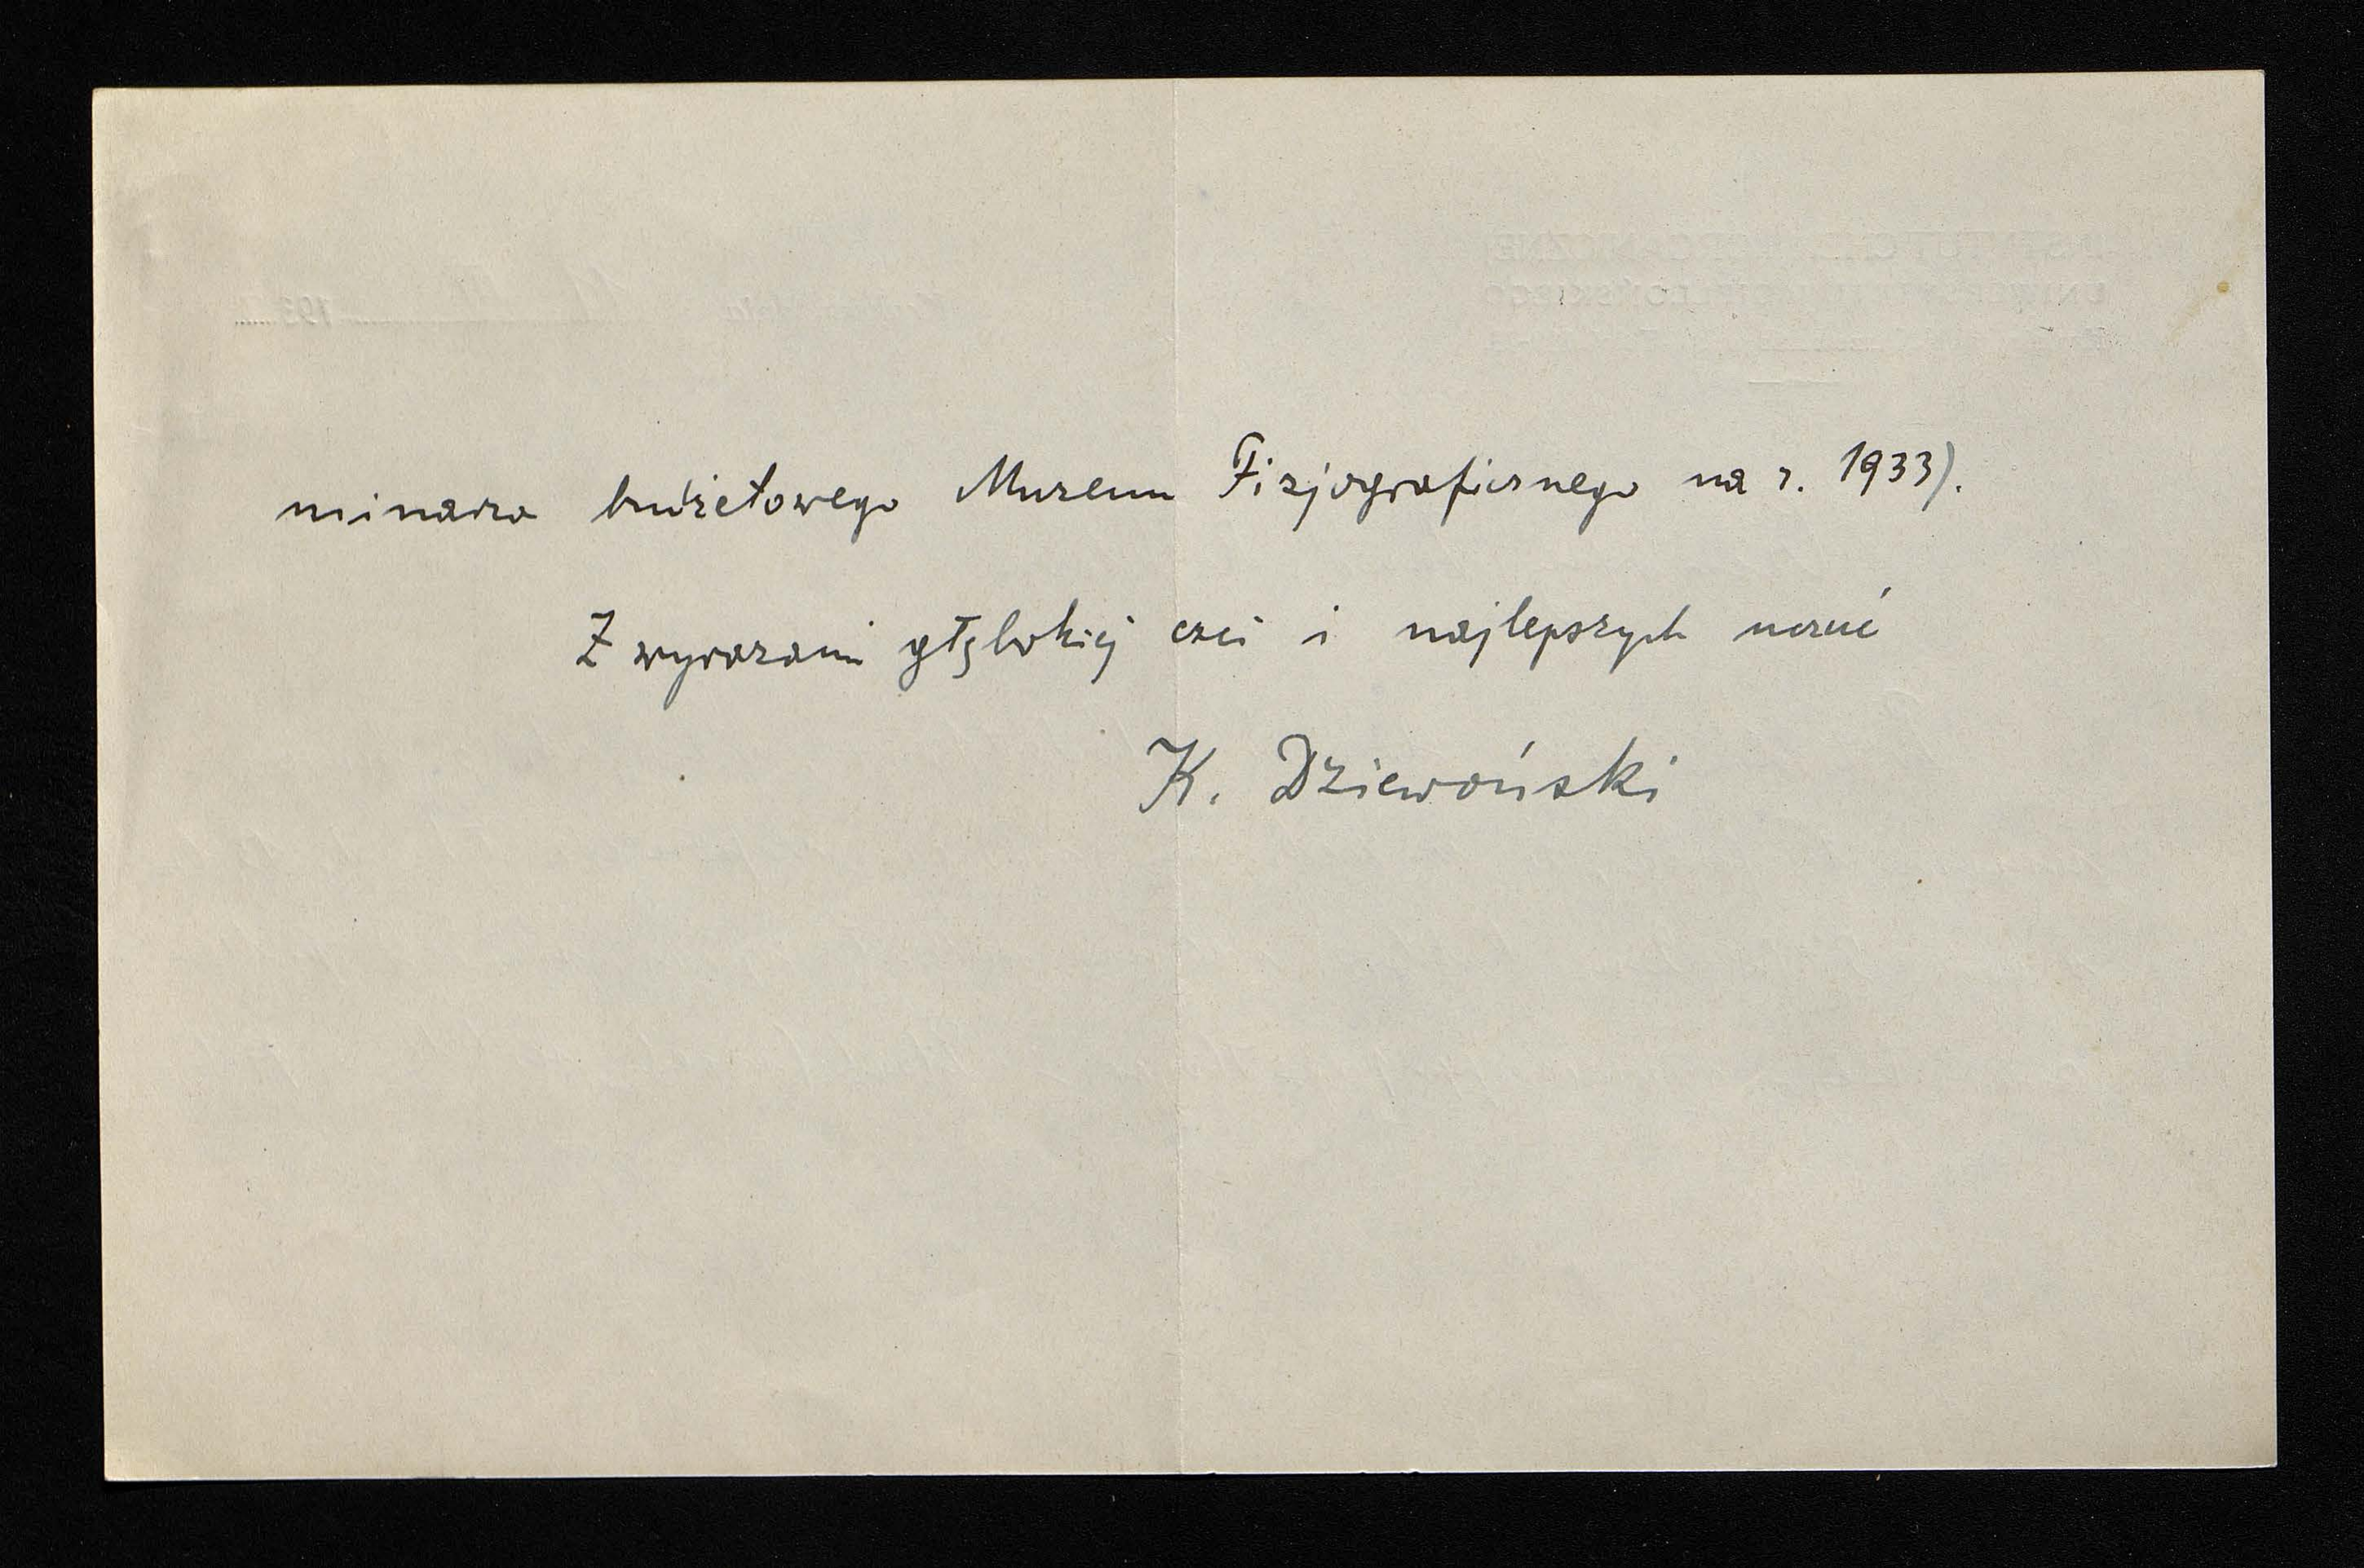 minarza budżetowego Muzeum Fizjograficznego na r. 1933).
Z wyrazami głębokiej czci i najlepszych uczuć
K. Dziewoński